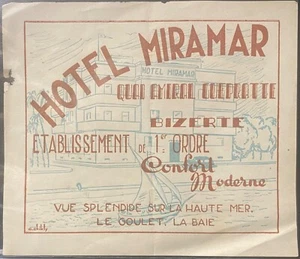 HOTEL MIRAMAR
HOTEL MIRAMAR
QUAI AMIRAL GUEPRATTE
BIZERTE
ETABLISSEMENT DE 1er ORDRE
Confort
Moderne
VUE SPLENDIDE SUR LA HAUTE MER,
LE GOULET, LA BAIE